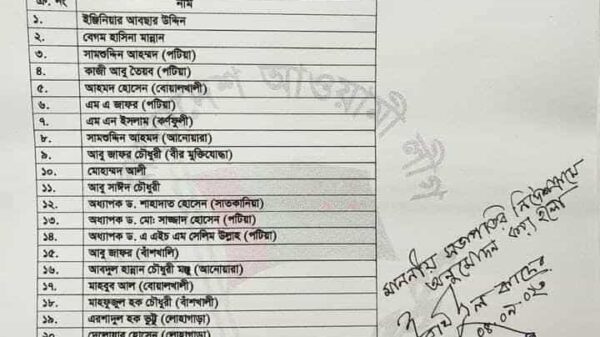 ক্র. নং নাম
১. ইঞ্জিনিয়ার আবছার উদ্দিন
২. বেগম হাসিনা মান্নান
৩. সামশুদ্দিন আহম্মদ (পটিয়া)
৪. কাজী আবু তৈয়ব (পটিয়া)
৫. আহমদ হোসেন (বোয়ালখালী)
৬. এম এ জাফর (পটিয়া)
৭. এম এন ইসলাম (কর্ণফুলী)
৮. সামশুদ্দিন আহমদ (আনোয়ারা)
৯. আবু জাফর চৌধুরী (বীর মুক্তিযোদ্ধা)
১০. মোহাম্মদ আলী
১১. আবু সাঈদ চৌধুরী
১২. অধ্যাপক ড. শাহাদাত হোসেন (সাতকানিয়া)
১৩. অধ্যাপক ড. মোঃ সাজ্জাদ হোসেন (পটিয়া)
১৪. অধ্যাপক ড. এ এইচ এম সেলিম উল্লাহ (পটিয়া)
১৫. আবু জাফর (বাঁশখালি)
১৬. আবদুল হান্নান চৌধুরী মঞ্জু (আনোয়ারা)
১৭. মাহবুব আল (বোয়ালখালী)
১৮. মাহফুজুল হক চৌধুরী (বাঁশখালী)
১৯. এরশাদুল হক ভুট্টু (লোহাগাড়া)
২০. দেলোয়ার হোসেন (লোহাগাড়া)
আওয়ামী লীগ
মাননীয় সভাপতির নির্দেশক্রমে
অনুমোদন করা হলো
কাদের